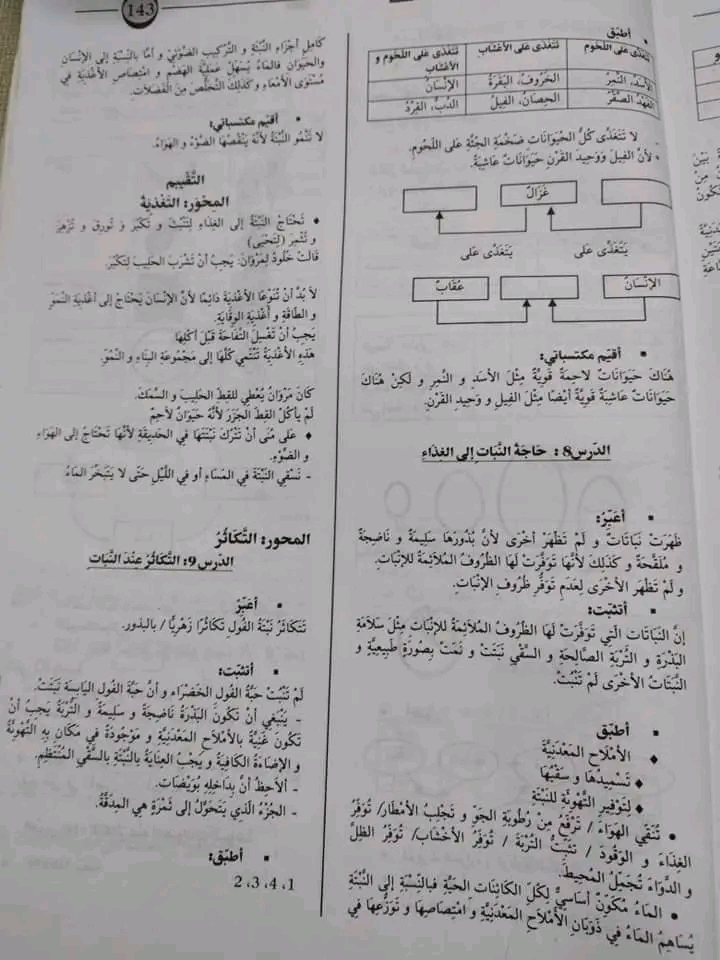 143
أطبق
تتغذى على اللحوم
تتغذى على الأعشاب
تتغذى على اللحوم و الأعشاب
الأسد، النمر
الخروف، البقرة
الإنسان
الفهد الصقر
الحصان، الفيل
الدب، القرد
لا تتغذى كل الحيوانات ضخمة الجثة على اللحوم.
لأن الفيل و وحيد القرن حيوانات عاشبة.
غزال
يتغذى على
يتغذى على
الإنسان
عقاب
أقيم مكتسباتي:
هناك حيوانات لاحمة قوية مثل الأسد و النمر و لكن هناك
حيوانات عاشبة قوية أيضا مثل الفيل و وحيد القرن.
الدرس8: حاجة النبات إلى الغذاء
أعبر:
ظهرت نباتات و لم تظهر أخرى لأن بذورها سليمة و ناضجة
و ملقحة و كذلك لأنها توفرت لها الظروف الملائمة للإنبات.
و لم تظهر الأخرى لعدم توفر ظروف الإنبات.
أتثبت:
إن النباتات التي توفرت لها الظروف الملائمة للإنبات مثل سلامة
البذرة و التربة الصالحة و السقي نبتت و نمت بصورة طبيعية و
النبتات الأخرى لم تنبت.
أطبق
الأملاح المعدنية
تسميدها و سقيها
لتوفير التهوئة للنبتة
تنقي الهواء / ترفع من رطوبة الجو و تجلب الأمطار/ توفر
الغذاء و الوقود / تثبت التربة / توفر الأخشاب/ توفر الظل
و الدواء تجمل المحيط.
الماء مكون أساسي لكل الكائنات الحية فبالنسبة إلى النبتة
يساهم الماء في ذوبان الأملاح المعدنية و امتصاصها و توزعها في
كامل أجزاء النبتة و التركيب الضوئي و أما بالنسبة إلى الإنسان
والحيوان فالماء يسهل عملية الهضم و امتصاص الأغذية في
مستوى الأمعاء و كذلك التخلص من الفضلات.
أقيم مكتسباتي:
لا تنمو النبتة لأنه ينقصها الضوء و الهواء.
التقييم
المحور: التغذية
تحتاج النبتة إلى الغذاء لتنبت و تكبر و تورق و تزهر
و تثمر (لتحيى)
قالت خلود لمروان: يجب أن تشرب الحليب لتكبر.
لا بد أن تنوعا الأغذية دائما لأن الإنسان يحتاج إلى أغذية النمو
و الطاقة و أغذية الوقاية.
يجب أن تغسل التفاحة قبل أكلها
هذه الأغذية تنتمي كلها إلى مجموعة البناء و النمو.
كان مروان يعطي للقط الحليب و السمك.
لم يأكل القط الجزر لأنه حيوان لاحم
على منى أن تترك نبتتها في الحديقة لأنها تحتاج إلى الهواء
و الضوء.
- تسقي النبتة في المساء أو في الليل حتى لا يتبخر الماء
المحور: التكاثر
الدرس 9: التكاثر عند النبات
أعبر
تتكاثر نبتة الفول تكاثرا زهريا / بالبذور.
أتثبت:
لم تنبت حبة الفول الخضراء و أن حبة الفول اليابسة نبتت.
- ينبغي أن تكون البذرة ناضجة و سليمة و التربة يجب أن
تكون غنية بالأملاح المعدنية و موجودة في مكان به التهوئة
و الإضاءة الكافية و يجب العناية بالنبتة بالسقي المنتظم.
- ألاحظ أن بداخله بويضات.
- الجزء الذي يتحول إلى ثمرة هي المدقة.
أطبق:
1، 4، 3، 2